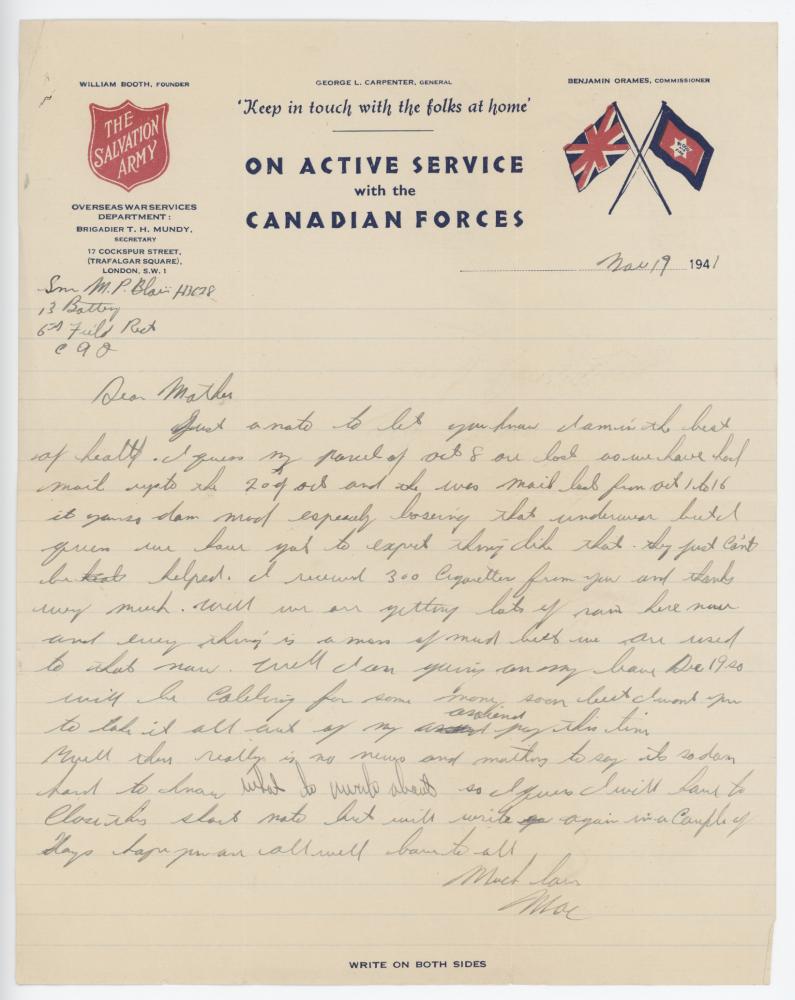 WILLIAM BOOTH, FOUNDER
GEORGE L. CARPENTER, GENERAL
BENJAMIN ORAMES, COMMISSIONER
THE
SALVATION
ARMY
'Keep in touch with the folks at home'
ON ACTIVE SERVICE
with the
CANADIAN FORCES
OVERSEAS WAR SERVICES
DEPARTMENT:
BRIGADIER T. H. MUNDY,
SECRETARY
17 COCKSPUR STREET,
(TRAFALGAR SQUARE),
LONDON, S.W. 1
Nov 19 1941
M.P. Blair
13 Battery
Field
Dear Mother
Just a note to let you know I am in the best
of health. I guess my parcel of Oct 8 are lost as we have had
mail upto the 20 of Oct and the was mail lost from Oct 1 to 16
dam mad that underwear but I
guess we have got to expect things like that. they just Can't
be helped. I received 300 Cigarettes from you and thanks
very much. Well we are getting lots of rain here now
and every thing is a mass of mud but we are used
to that now. Well I am going on my leave Dec 19 so
will be Cabling for some money soon but I want you
to take it all out of my assigned pay this time
Well there really is no news and nothing to say its so dam
hard to know what to write about so I guess I will have to
Close this short note but will write again in a Couple of
days hope you are all well love to all
Much love
Moe
WRITE ON BOTH SIDES